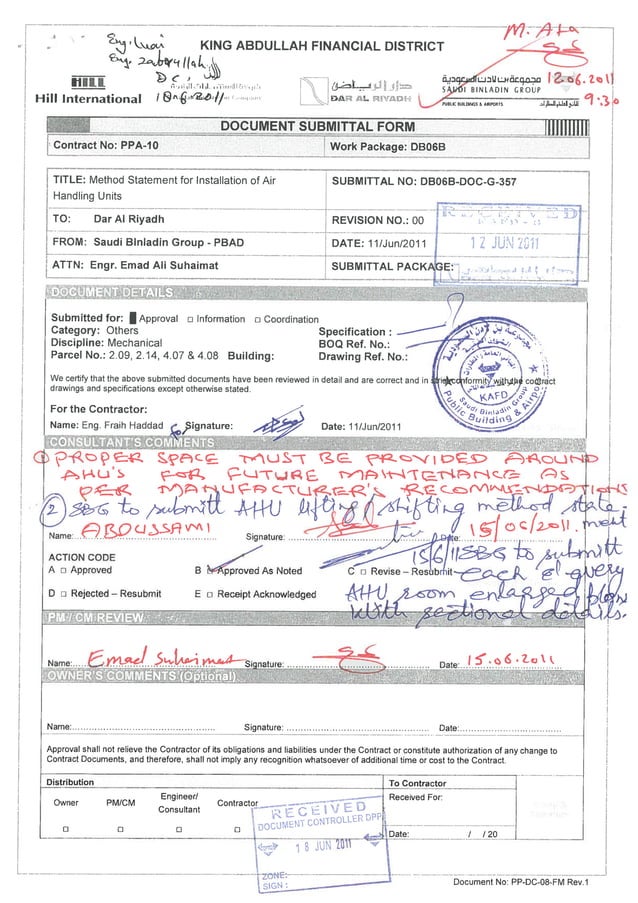 M. Ata
Eng. Luai
Eng. Zabeullah
D C,
KING ABDULLAH FINANCIAL DISTRICT
HILL
Hill International
18.6.2011
دار الرياض
DAR AL RIYADH
مجموعة بن لادن السعودية
SAUDI BINLADIN GROUP
PUBLIC BUILDINGS & AIRPORTS
12.06.2011
9:30
DOCUMENT SUBMITTAL FORM
Contract No: PPA-10 Work Package: DB06B
TITLE: Method Statement for Installation of Air Handling Units
SUBMITTAL NO: DB06B-DOC-G-357
TO: Dar Al Riyadh
REVISION NO.: 00
RECEIVED
12 JUN 2011
FROM: Saudi BInladin Group - PBAD
DATE: 11/Jun/2011
ATTN: Engr. Emad Ali Suhaimat
SUBMITTAL PACKAGE:
DOCUMENT DETAILS
Submitted for: Approval Information Coordination
Category: Others
Discipline: Mechanical
Parcel No.: 2.09, 2.14, 4.07 & 4.08 Building:
Specification :
BOQ Ref. No.:
Drawing Ref. No.:
KAFD
Saudi Binladin Group
Public Building & Airport
We certify that the above submitted documents have been reviewed in detail and are correct and in strict conformity with the contract
drawings and specifications except otherwise stated.
For the Contractor:
Name: Eng. Fraih Haddad Signature: Date: 11/Jun/2011
CONSULTANT'S COMMENTS
① PROPER SPACE MUST BE PROVIDED AROUND
AHU'S FOR FUTURE MAINTENANCE AS
PER MANUFACTURER'S RECOMMENDATIONS
② SBG to submitt AHU lifting/shifting method state-
ment
Name: ABOUSSAMI Signature: Date: 15/06/2011.
15/6/11 SBG to submitt
each & every
AHU room enlarged plan
with sectional details.
ACTION CODE
A Approved B Approved As Noted C Revise – Resubmit
D Rejected – Resubmit E Receipt Acknowledged
PM / CM REVIEW
Name: Emad Suhaimat Signature: Date: 15.06.2011
OWNER'S COMMENTS (Optional)
Name: Signature: Date:
Approval shall not relieve the Contractor of its obligations and liabilities under the Contract or constitute authorization of any change to
Contract Documents, and therefore, shall not imply any recognition whatsoever of additional time or cost to the Contract.
Distribution
Owner PM/CM Engineer/ Consultant Contractor
To Contractor
Received For:
Date: / / 20
RECEIVED
DOCUMENT CONTROLLER DPP
18 JUN 2011
ZONE:
SIGN :
Document No: PP-DC-08-FM Rev.1